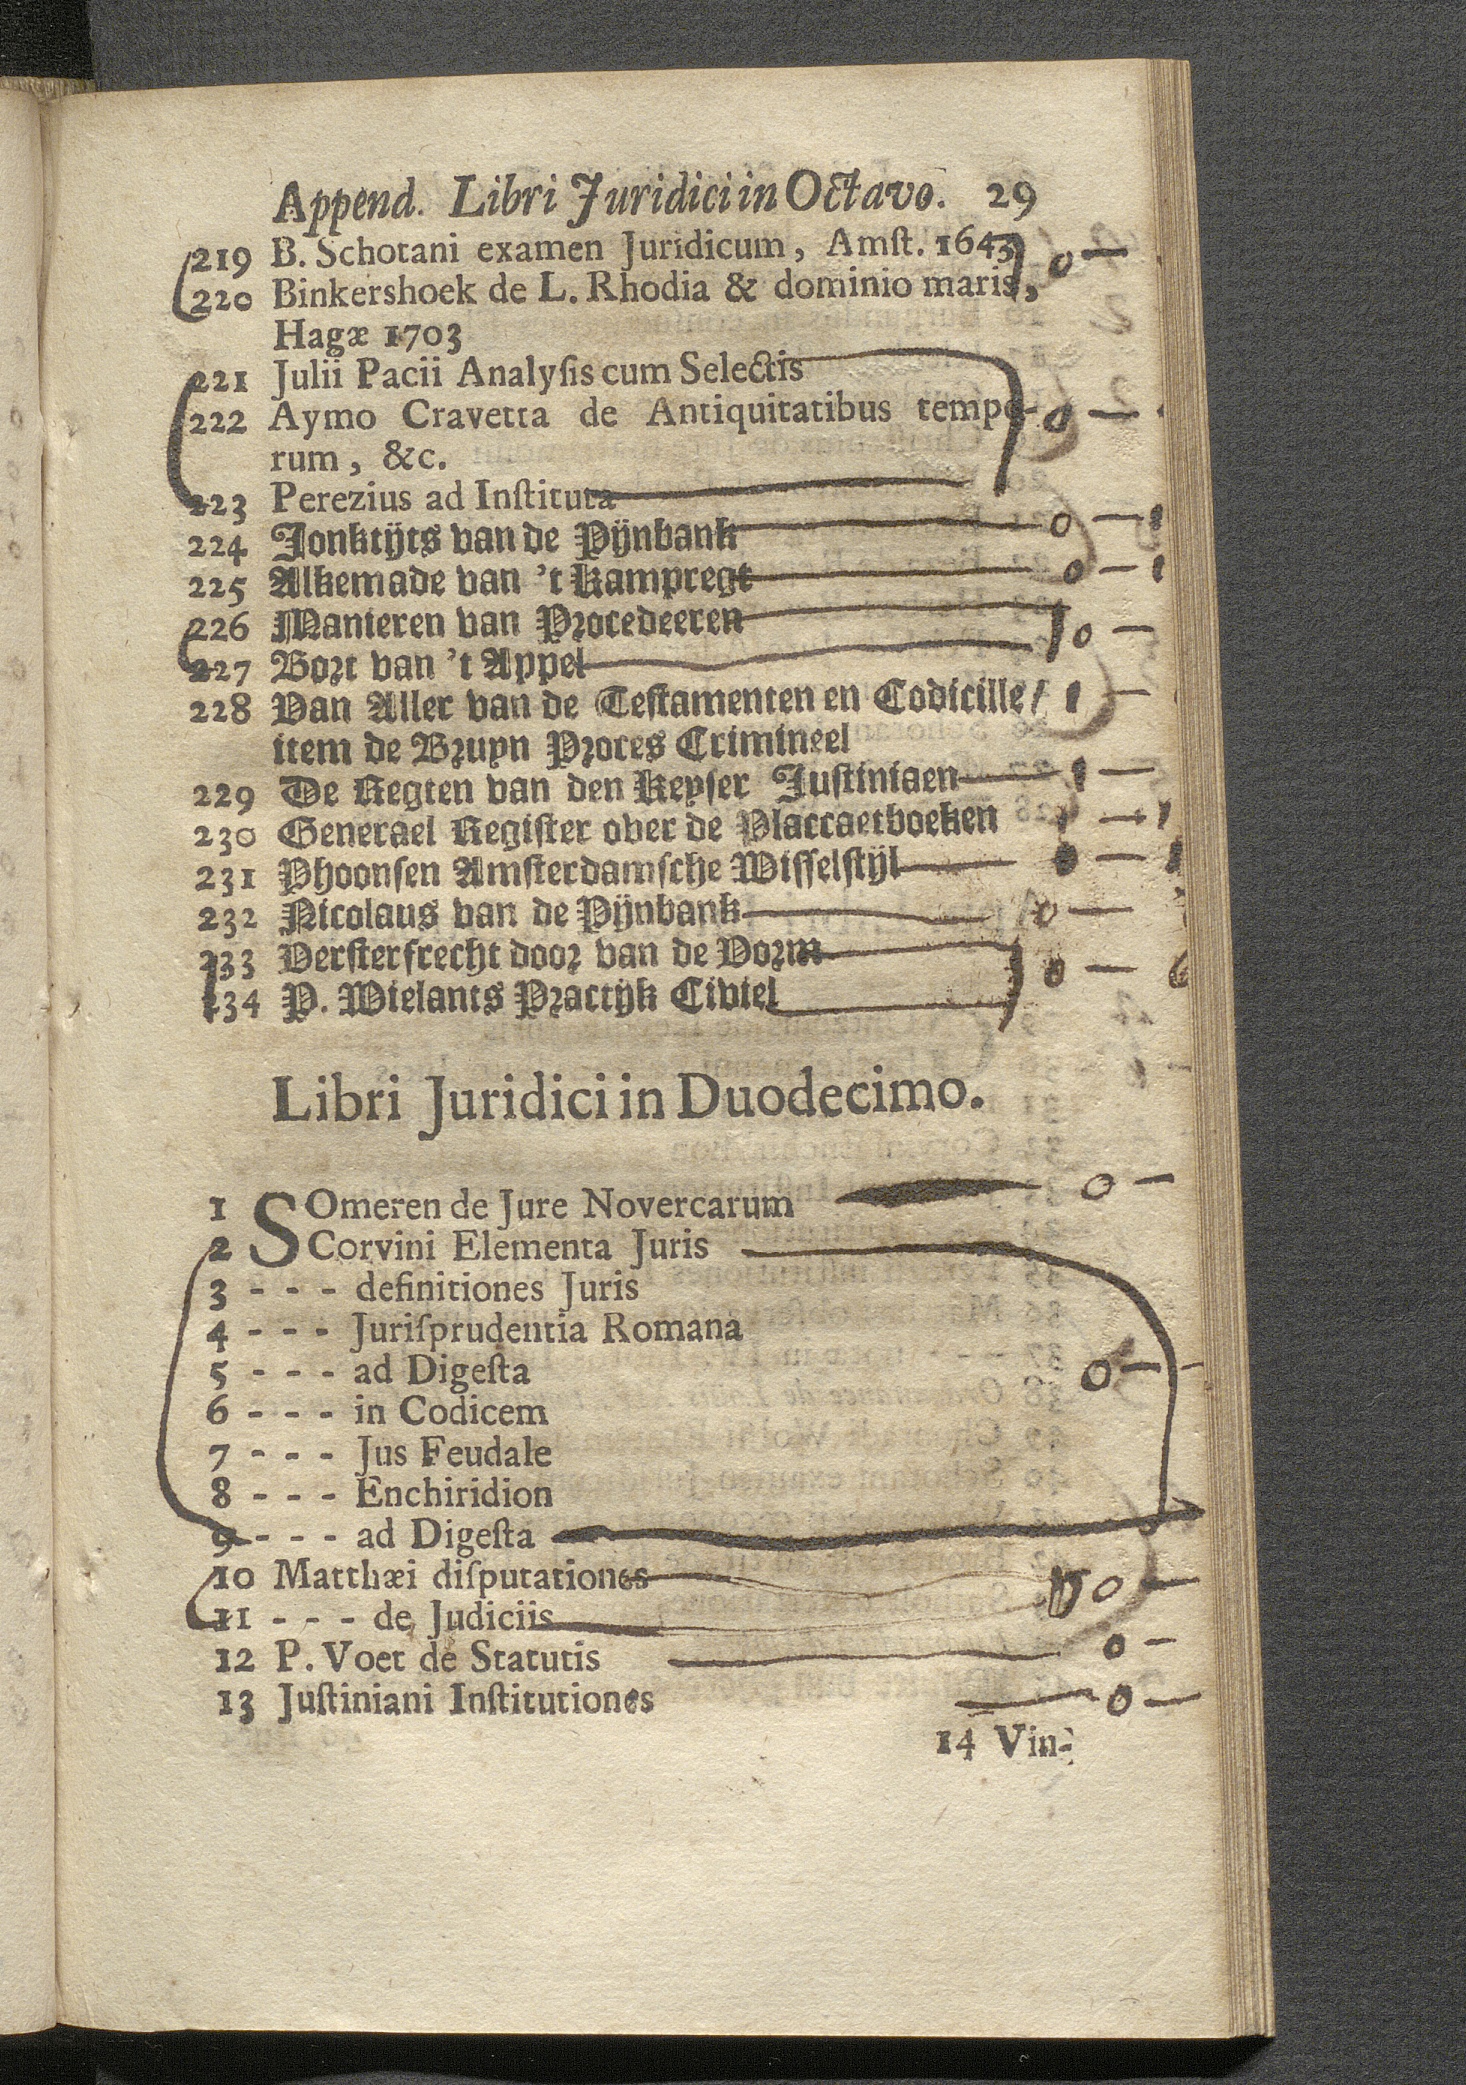 Append. Libri Juridici in Octavo. 29
219 B. Schotani examen Juridicum, Amſt. 1643
220 Binkershoek de L. Rhodia & dominio maris,
Hagæ 1703
221 Julii Pacii Analyſis cum Selectis
222 Aymo Cravetta de Antiquitatibus tempo-
rum, &c.
223 Perezius ad Inſtituta
224 Jonktijts van de Pijnbank
225 Alkemade van 't Kampregt
226 Manieren van Procedeeren
227 Bort van 't Appel
228 Van Aller van de Teſtamenten en Codicille/
item de Bruyn Proces Crimineel
229 De Regten van den Keyſer Juſtiniaen
230 Generael Regiſter over de Placcaetboeken
231 Phoonſen Amſterdamſche Wiſſelſtijl
232 Nicolaus van de Pijnbank
233 Verſterfrecht door van de Vorm
234 P. Wielants Practijk Civiel
Libri Juridici in Duodecimo.
1 SOmeren de Jure Novercarum
2 Corvini Elementa Juris
3 - - - definitiones Juris
4 - - - Juriſprudentia Romana
5 - - - ad Digeſta
6 - - - in Codicem
7 - - - Jus Feudale
8 - - - Enchiridion
9 - - - ad Digeſta
10 Matthæi diſputationes
11 - - - de Judiciis
12 P. Voet de Statutis
13 Juſtiniani Inſtitutiones
14 Vin-